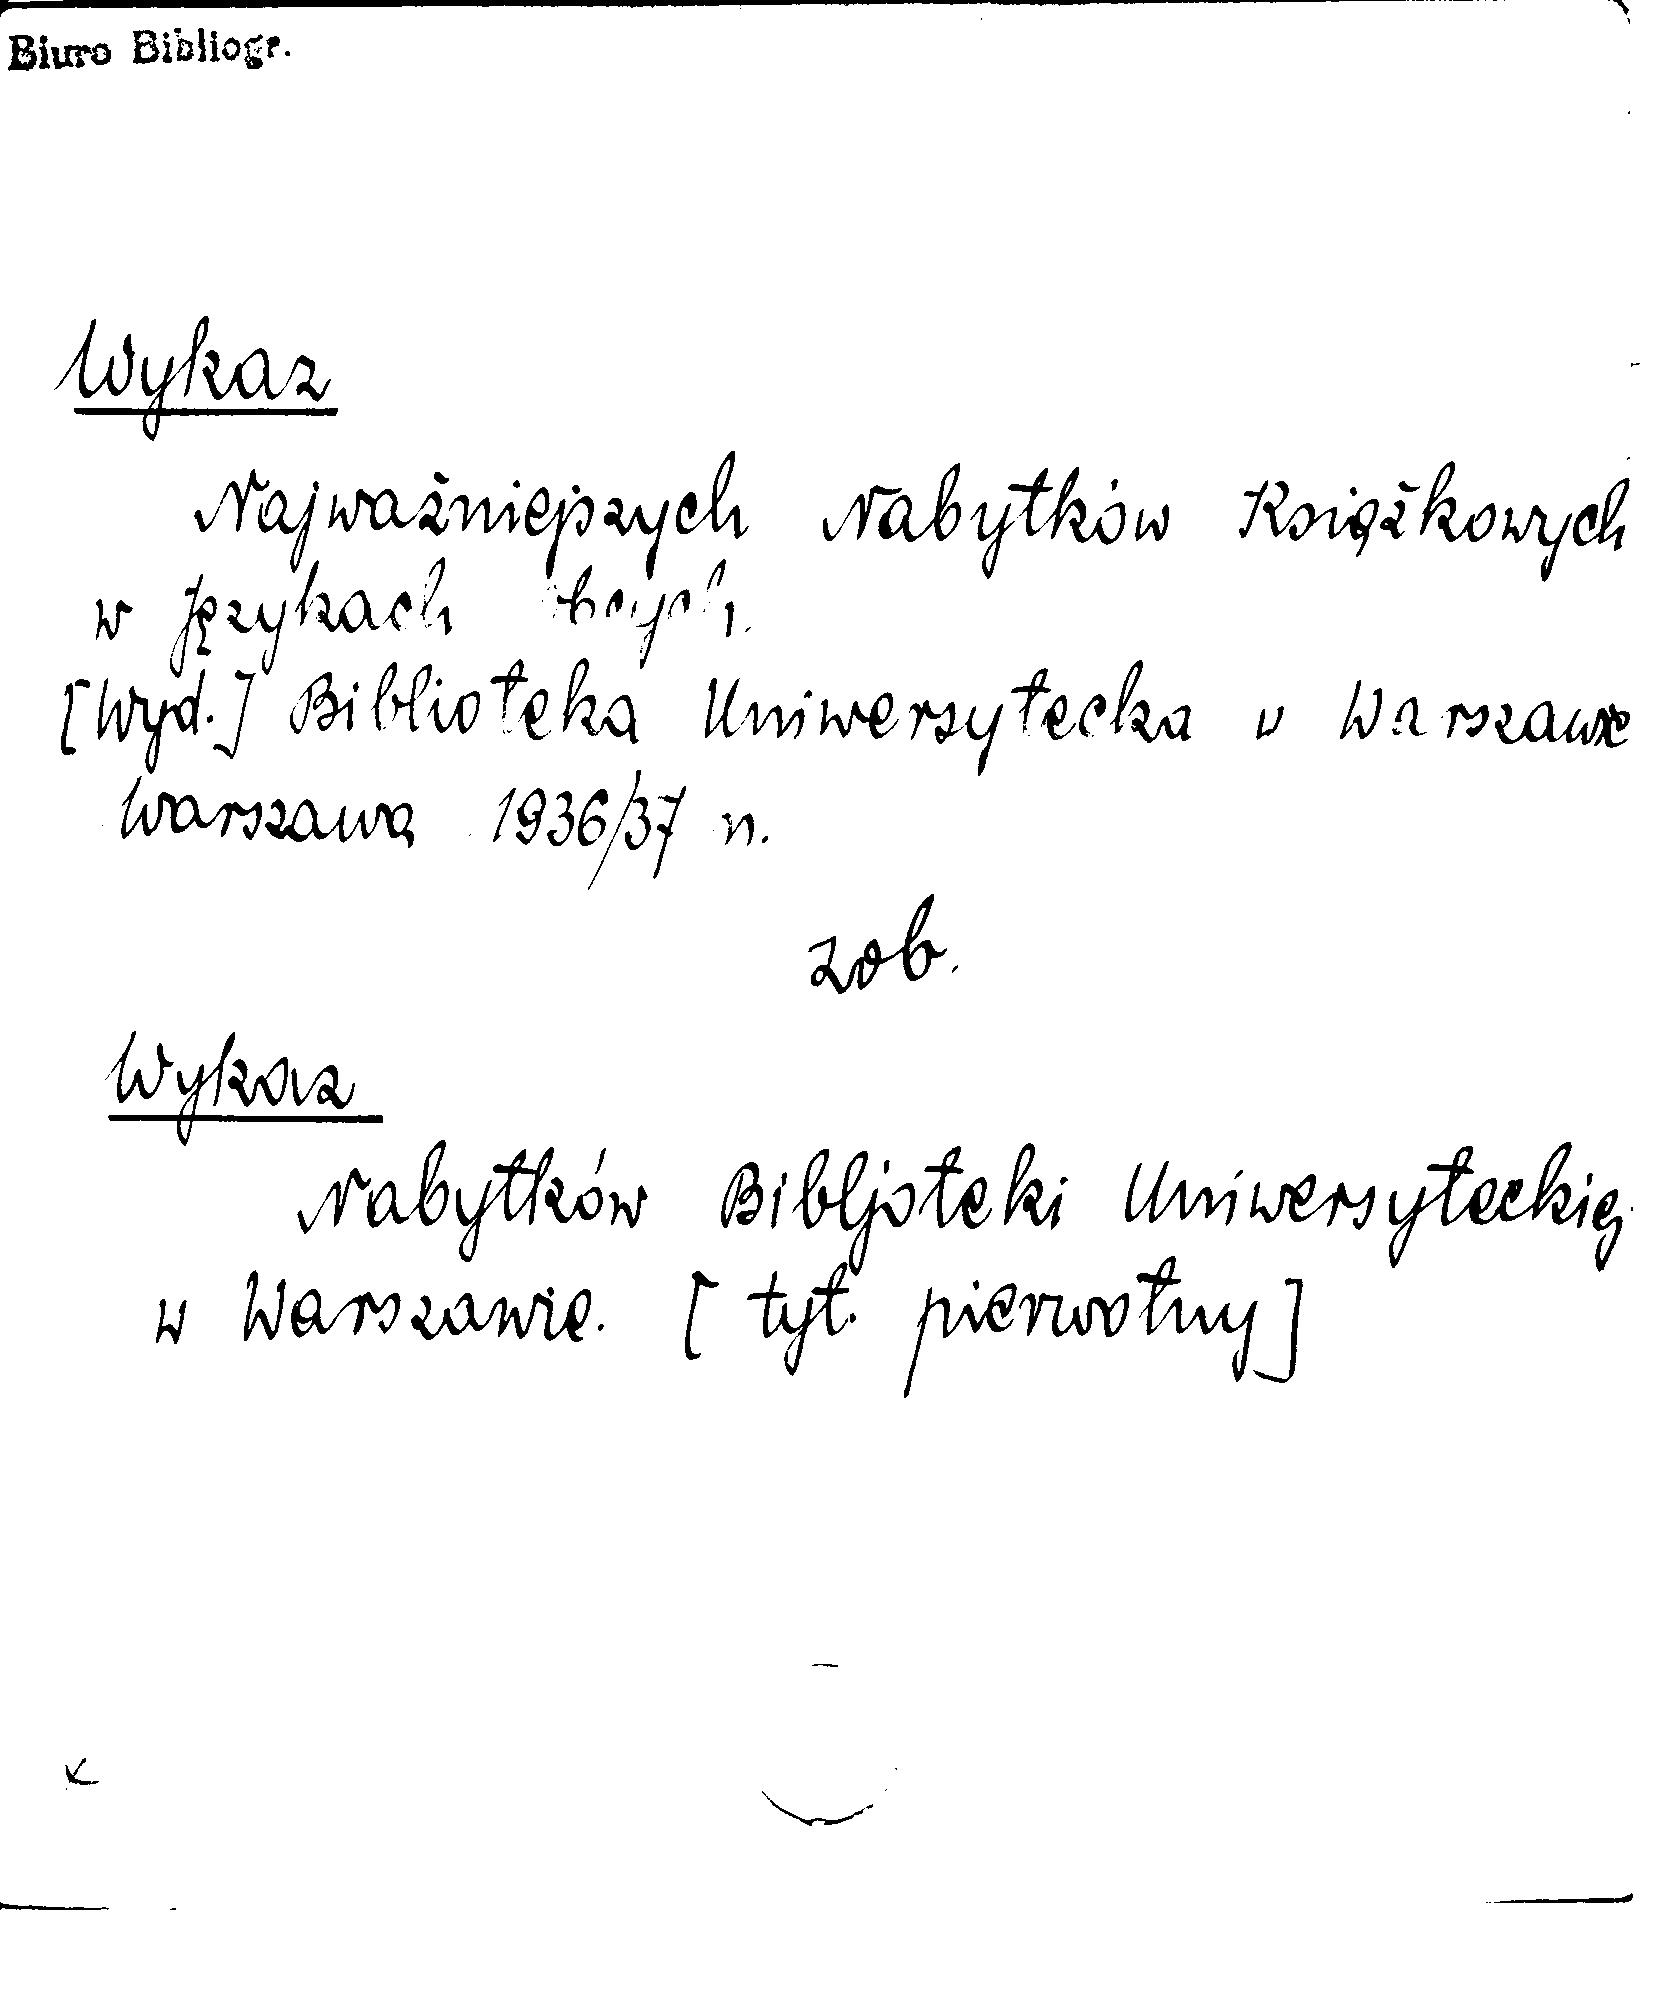 Biuro Bibliogr.
Wykaz
Najważniejszych Nabytków Książkowych
w językach obcych.
[Wyd.] Biblioteka Uniwersytecka w Warszawie
Warszawa 1936/37 n.
zob.
Wykaz
Nabytków Bibljoteki Uniwersyteckiej
w Warszawie. [tyt. pierwotny]